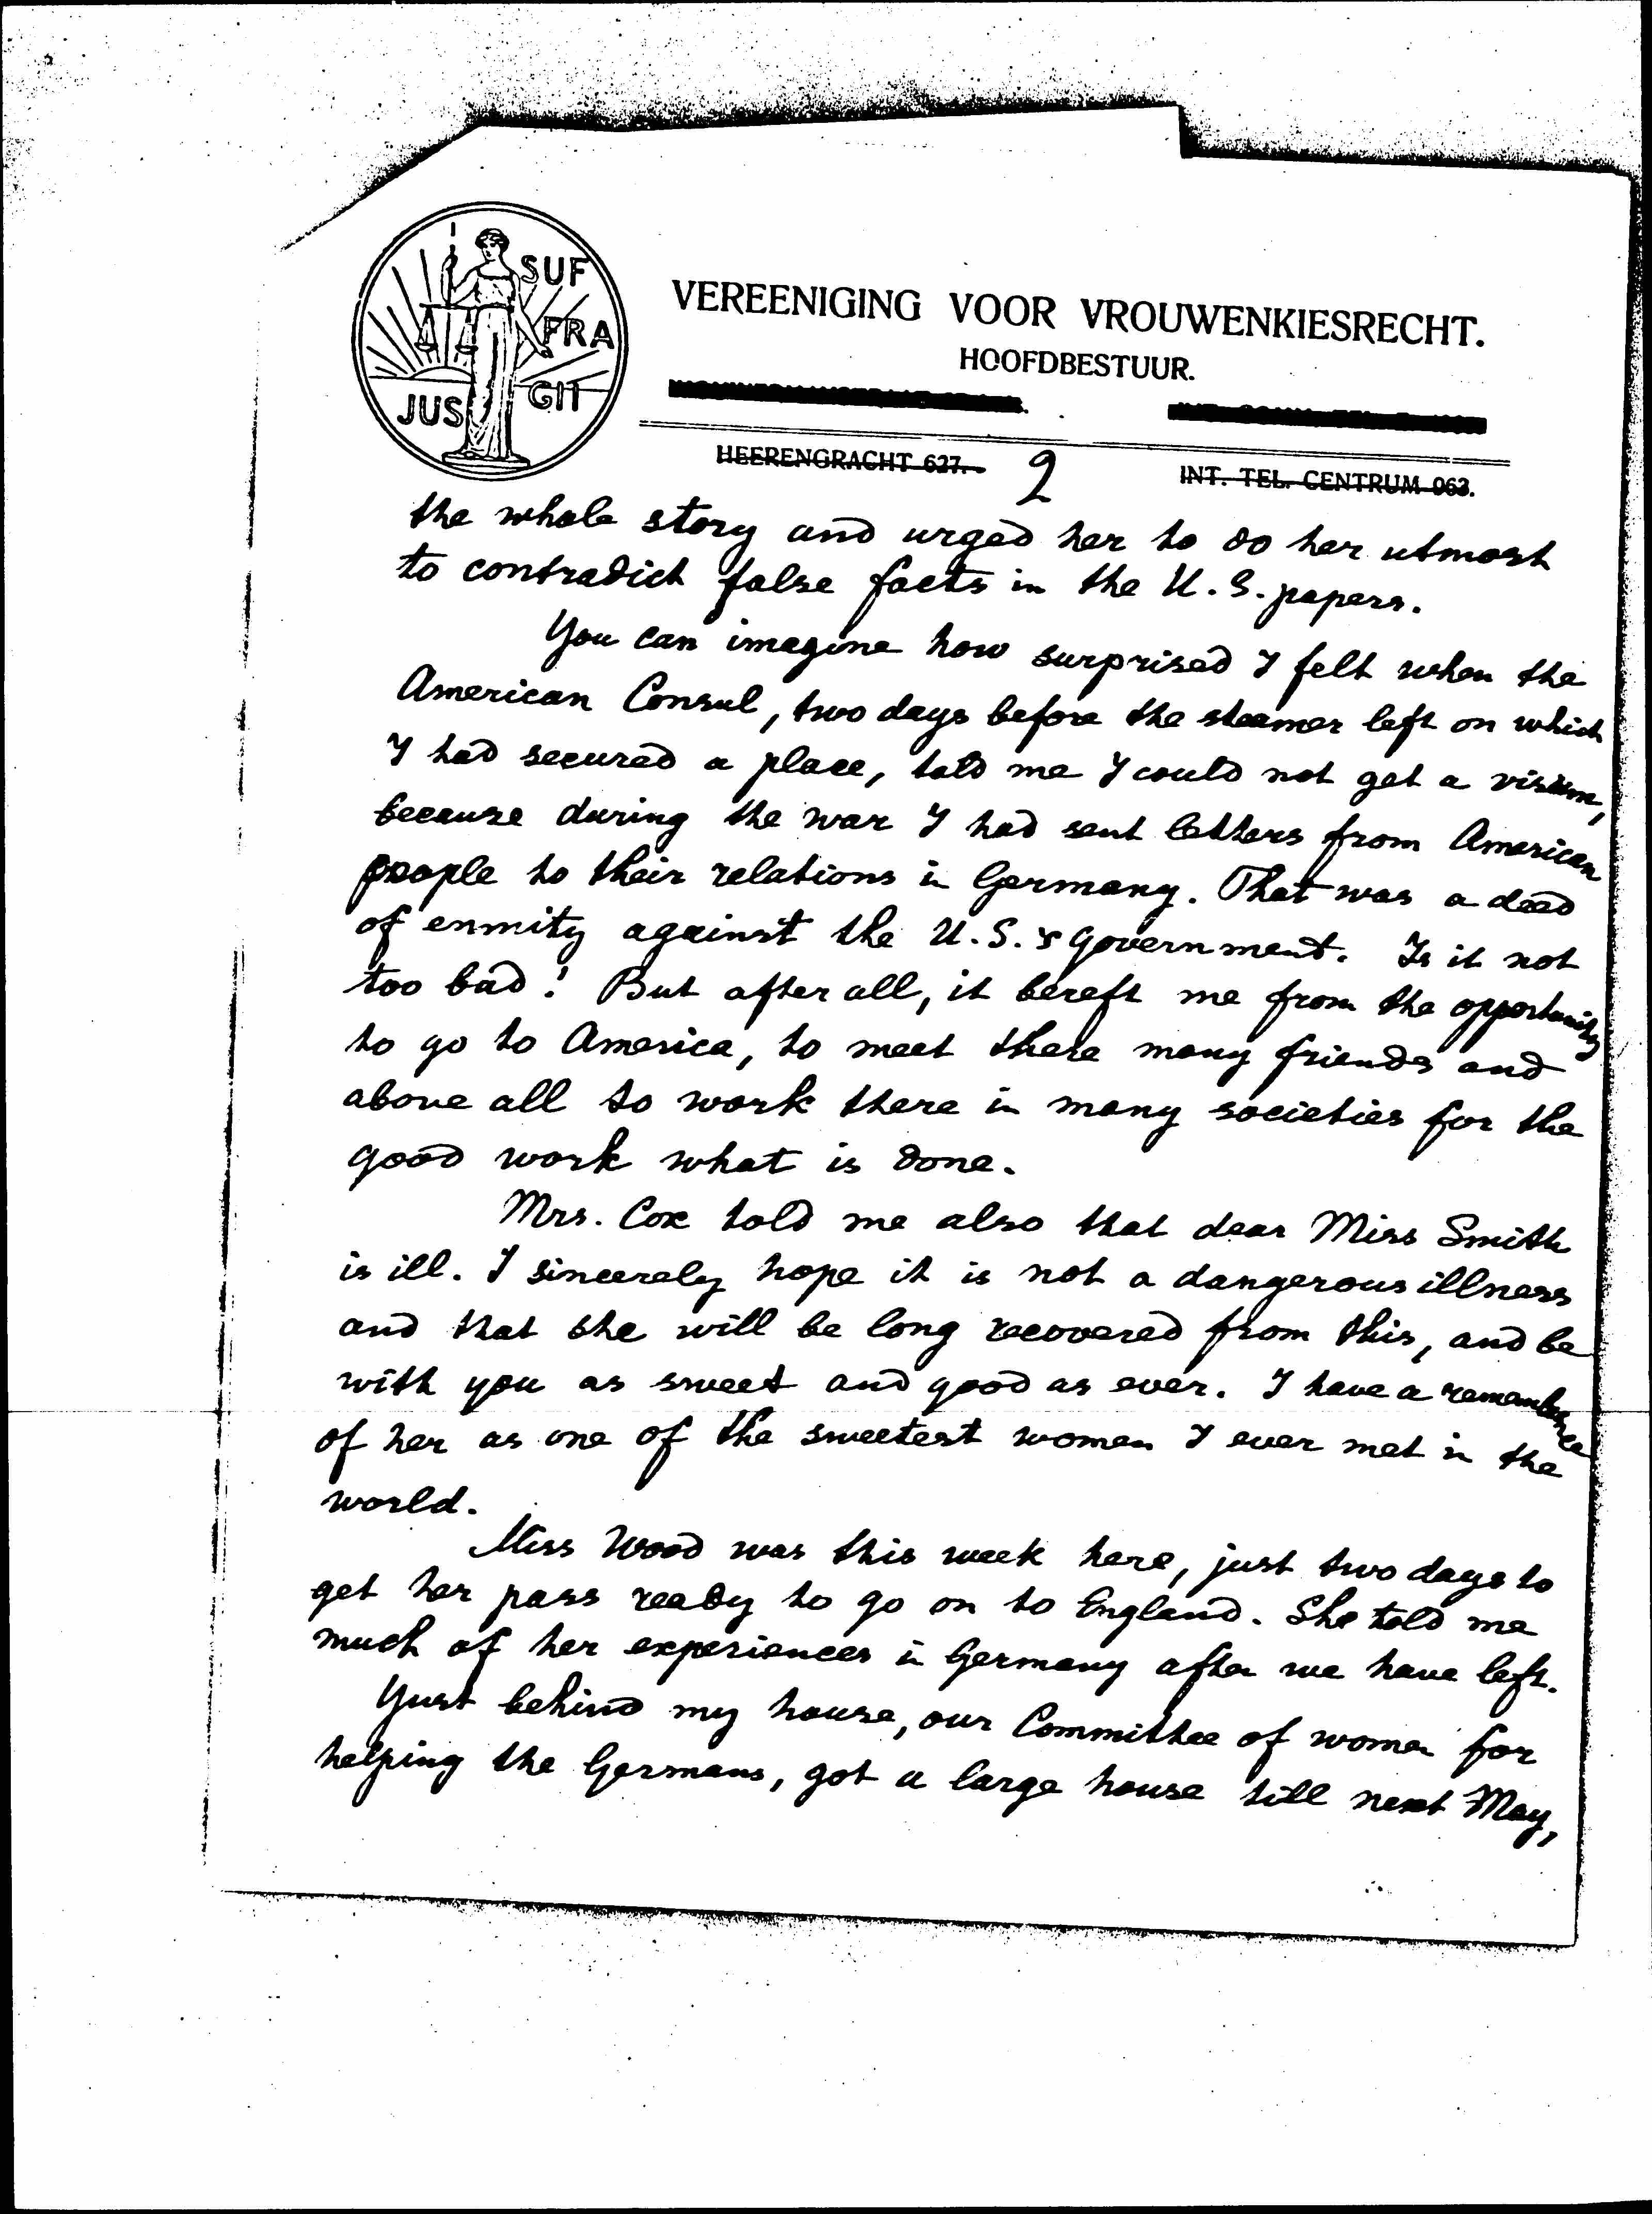 SUF
FRA
JUS GIT
VEREENIGING VOOR VROUWENKIESRECHT.
HOOFDBESTUUR.
HEERENGRACHT 627.
2
INT. TEL. CENTRUM 063.
the whole story and urged her to do her utmost
to contradict false facts in the U.S. papers.
You can imagine how surprised I felt when the
American Consul, two days before the steamer left on which
I had secured a place, told me I could not get a visum,
because during the war I had sent letters from American
people to their relations in Germany. That was a deed
of enmity against the U.S.'s government. Is it not
too bad! But after all, it bereft me from the opportunity
to go to America, to meet there many friends and
above all to work there in many societies for the
good work what is done.
Mrs. Cox told me also that dear Miss Smith
is ill. I sincerely hope it is not a dangerous illness
and that she will be long recovered from this, and be
with you as sweet and good as ever. I have a remembrance
of her as one of the sweetest women I ever met in the
world.
Miss Wood was this week here, just two days to
get her pass ready to go on to England. She told me
much of her experiences in Germany after we have left.
Yust behind my house, our Committee of women for
helping the Germans, got a large house till next May,